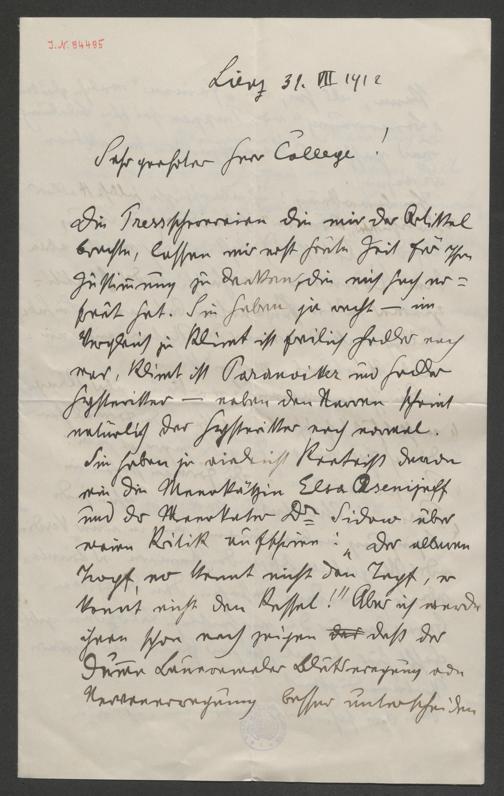 J.N. 84495
Lienz 31. VII 1912
Sehr geehrter Herr College!
Die Pressschereien die mir der Artikel
brachte, lassen mir erst heute Zeit für Ihre
Zustimmung zu danken, die mich sehr er=
freut hat. Sie haben ja recht — im
Vergleich zu Klimt ist freilich Hodler noch
was, Klimt ist Paranoiker und Hodler
Hysteriker — neben den Narren scheint
natürlich der Hysteriker noch normal.
Sie haben ja vielleicht Kentniß davon
wie die Elsa Asenijeff
und der Dr Sidow über
meine Kritik aufschrien: „Der albernen
Tropf, er kennt nicht den Topf, er
kennt nicht den Kessel!" Aber ich werde
ihnen schon noch zeigen daß der
dumme Bauernmaler Blutserregung von
Nervenerregung besser unterscheiden